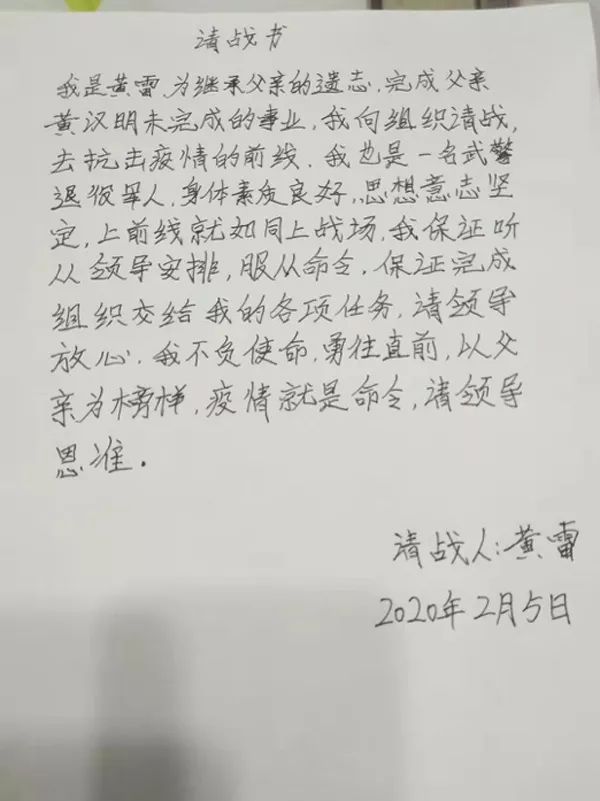 请战书
我是黄雷,为继承父亲的遗志,完成父亲
黄汉明未完成的事业,我向组织请战,
去抗击疫情的前线.我也是一名武警
退役军人,身体素质良好,思想意志坚
定,上前线就如同上战场,我保证听
从领导安排,服从命令.保证完成
组织交给我的各项任务,请领导
放心.我不负使命,勇往直前,以父
亲为榜样,疫情就是命令,请领导
恩准.
请战人:黄雷
2020年2月5日